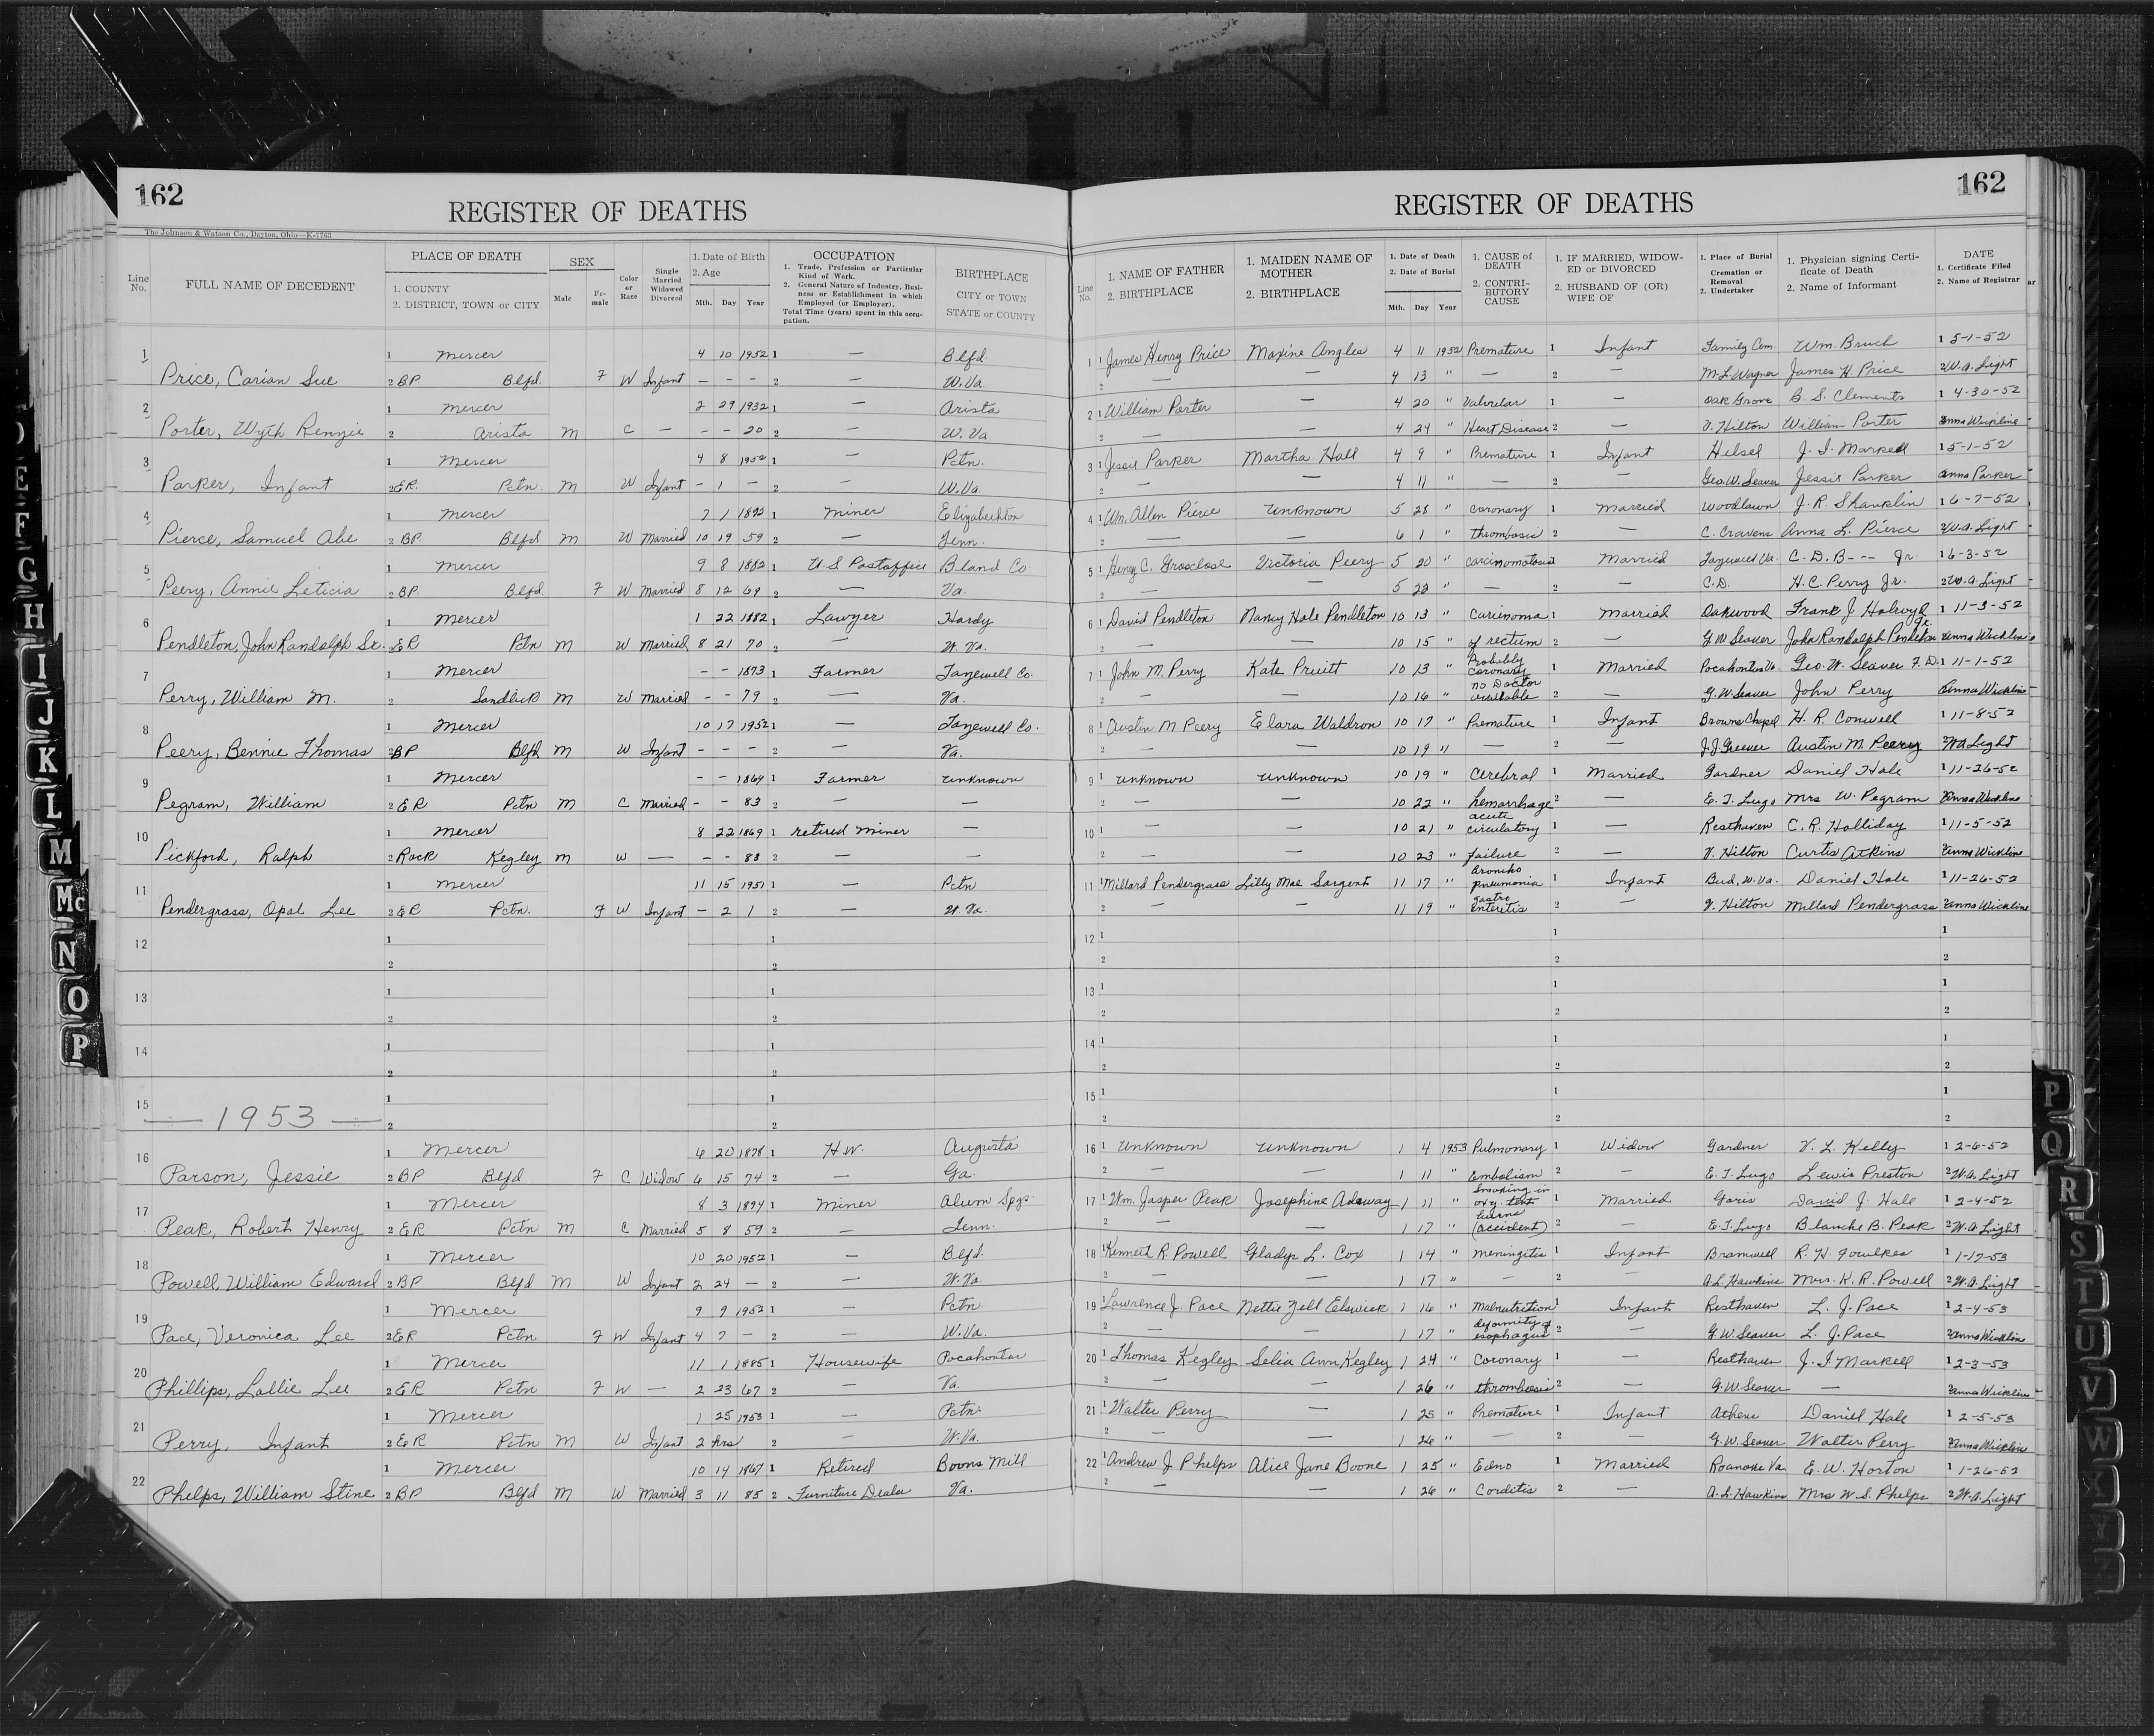 162
REGISTER OF DEATHS
The Johnson & Watson Co., Dayton, Ohio—K-7763
Line No.
FULL NAME OF DECEDENT
PLACE OF DEATH
1. COUNTY
2. DISTRICT, TOWN or CITY
SEX
Male
Fe-male
Color or Race
Single Married Widowed Divorced
1. Date of Birth
2. Age
Mth. Day Year
OCCUPATION
1. Trade, Profession or Particular Kind of Work.
2. General Nature of Industry, Business or Establishment in which Employed (or Employer).
Total Time (years) spent in this occupation.
BIRTHPLACE
CITY or TOWN
STATE or COUNTY
1 1 Mercer 4 10 1952 1 — Blfd
Price, Carian Sue 2 BP Blfd. F W Infant — — — 2 — W.Va.
2 1 Mercer 2 29 1932 1 — Arista
Porter, Wyth Renzie 2 Arista M C — — — 20 2 — W. Va.
3 1 Mercer 4 8 1952 1 — Pctn.
Parker, Infant 2 E.R. Pctn. M W Infant — 1 — 2 — W.Va.
4 1 Mercer 7 1 1892 1 Miner
Pierce, Samuel Abe 2 BP Blfd M W Married 10 19 59 2 — Tenn.
5 1 Mercer 9 8 1882 1 U.S Postoffice Bland Co.
Peery, Annie Leticia 2 BP. Blfd. F W Married 8 12 69 2 — Va.
6 1 Mercer 1 22 1882 1 Lawyer Hardy
Pendleton, John Randolph Sr. 2 ER Pctn M W Married 8 21 70 2 — W. Va.
7 1 Mercer — — 1873 1 Farmer Tazewell Co.
Perry, William M. 2 Sandlick M W Married — — 79 2 — Va.
8 1 Mercer 10 17 1952 1 — Tazewell Co.
Peery, Bennie Thomas 2 BP Blfd M W Infant — — — 2 — Va.
9 1 Mercer — — 1869 1 Farmer unknown
Pegram, William 2 E R Pctn M C Married — — 83 2 — —
10 1 Mercer 8 22 1869 1 retired miner —
Pickford, Ralph 2 Rock Kegley M W — — — 83 2 — —
11 1 Mercer 11 15 1951 1 — Pctn
Pendergrass, Opal Lee 2 E R Pctn. F W Infant — 2 1 2 — W. Va.
12 1 1
2 2
13 1 1
2 2
14 1 1
2 2
15 1 1
— 1953 — 2 2
16 1 Mercer 6 20 1878 1 H.W. Augusta
Parson, Jessie 2 BP Blfd F C Widow 6 15 74 2 — Ga.
17 1 Mercer 8 3 1894 1 Miner Alum Spgs.
Peak, Robert Henry 2 ER Pctn M C Married 5 8 59 2 — Tenn.
18 1 Mercer 10 20 1952 1 — Blfd.
Powell, William Edward 2 BP Blfd M W Infant 2 24 — 2 — W. Va.
19 1 Mercer 9 9 1952 1 — Pctn.
Pace, Veronica Lee 2 ER Pctn F W Infant 4 7 — 2 — W.Va.
20 1 Mercer 11 1 1885 1 Housewife Pocahontas
Phillips, Lallie Lee 2 ER Pctn F W — 2 23 67 2 — Va.
21 1 Mercer 1 25 1953 1 — Pctn.
Perry, Infant 2 E R Pctn M W Infant 2 hrs 2 — W.Va.
22 1 Mercer 10 14 1867 1 Retired Boons Mill
Phelps, William Stine 2 BP Blfd M W Married 3 11 85 2 Furniture Dealer Va.
162
REGISTER OF DEATHS
Line No.
1. NAME OF FATHER
2. BIRTHPLACE
1. MAIDEN NAME OF MOTHER
2. BIRTHPLACE
1. Date of Death
2. Date of Burial
Mth. Day Year
1. CAUSE of DEATH
2. CONTRIBUTORY CAUSE
1. IF MARRIED, WIDOWED or DIVORCED
2. HUSBAND OF (OR) WIFE OF
1. Place of Burial Cremation or Removal
2. Undertaker
1. Physician signing Certificate of Death
2. Name of Informant
DATE
1. Certificate Filed
2. Name of Registrar
1 1 James Henry Price Maxine Angles 4 11 1952 Premature 1 Infant Family Cem. Wm. Bruch 1 5-1-52
2 — — 4 13 " — 2 — M.L. Wagner James H. Price 2 W.A. Light
2 1 William Porter — 4 20 " Valvular 1 — Oak Grove B. S. Clements 1 4-30-52
2 — — 4 24 " Heart Disease 2 — V. Hilton William Porter Anna Wickline
3 1 Jessie Parker Martha Hall 4 9 " Premature 1 Infant Helsel J. I. Markell 1 5-1-52
2 — — 4 11 " — 2 — Geo. W. Seaver Jessie Parker Anna Parker
4 1 Wm. Allen Pierce Unknown 5 28 " Coronary 1 Married Woodlawn J. R. Shanklin 1 6-7-52
2 — — 6 1 " thrombosis 2 — C. Cravens Anna L. Pierce 2 W.A. Light
5 1 Henry C. Grosclose Victoria Peery 5 20 " carcinomatosis 1 Married Tazewell Va. C. D. B--- Jr. 1 6-3-52
2 — — 5 22 " — 2 — C.D. H. C. Perry Jr. 2 W.A. Light
6 1 David Pendleton Nancy Hale Pendleton 10 13 " Carcinoma 1 Married Oakwood Frank J. Holroyd 1 11-3-52
2 — — 10 15 " of rectum 2 — G W Seaver John Randolph Pendleton Jr. 2 Anna Wickline
7 1 John M. Perry Kate Pruitt 10 13 " Probably Coronary 1 Married Pocahontas Va. Geo. W. Seaver F.D. 1 11-1-52
2 — — 10 16 " no Doctor available 2 — G.W. Seaver John Perry Anna Wickline
8 1 Austin M Peery Elara Waldron 10 17 " Premature 1 Infant Browns Chapel H. R. Conwell 1 11-8-52
2 — — 10 19 " — 2 — J.J. Greever Austin M. Peery 2 W.A. Light
9 1 unknown unknown 10 19 " Cerebral 1 Married Gardner Daniel Hale 1 11-26-52
2 — — 10 22 " hemorrhage 2 — E. T. Lugo Mrs W. Pegram 2 Anna Wickline
10 1 — — 10 21 " acute circulatory 1 — Resthaven C. R. Holliday 1 11-5-52
2 — — 10 23 " failure 2 — V. Hilton Curtis Atkins 2 Anna Wickline
11 1 Millard Pendergrass Lilly Mae Sargent 11 17 " Broncho pneumonia 1 Infant Bud, W. Va. Daniel Hale 1 11-26-52
2 — — 11 19 " gastro enteritis 2 — V. Hilton Millard Pendergrass 2 Anna Wickline
12 1 1 1
2 2 2
13 1 1 1
2 2 2
14 1 1 1
2 2 2
15 1 1 1
2 2 2
16 1 Unknown unknown 1 4 1953 Pulmonary 1 Widow Gardner V. L. Kelly 1 2-6-52
2 — — 1 11 " Embolism 2 — E. T. Lugo Lewis Preston 2 W.A. Light
17 1 Wm. Jasper Peak Josephine 1 11 " Smoking in oxy tent 1 Married Goris David J. Hale 1 2-4-52
2 — — 1 17 " burns (accident) 2 — E. T. Lugo Blanche B. Peak 2 W.A. Light
18 1 Kenneth R. Powell Gladys L. Cox 1 14 " meningitis 1 Infant Bramwell R. H. Fowlkes 1 1-17-53
2 — — 1 17 " — 2 — A.L. Hawkins Mrs. K. R. Powell 2 W.A. Light
19 1 Lawrence J. Pace Nettie Zell Elswick 1 16 " Malnutrition 1 Infant Resthaven L. J. Pace 1 2-4-53
2 — — 1 17 " deformity of esophagus 2 — G.W. Seaver L. J. Pace 2 Anna Wickline
20 1 Thomas Kegley Selia Ann Kegley 1 24 " Coronary 1 — Resthaven J. I Markell 1 2-3-53
2 — — 1 26 " thrombosis 2 — G.W. Seaver — 2 Anna Wickline
21 1 Walter Perry — 1 25 " Premature 1 Infant Athens Daniel Hale 1 2-5-53
2 — — 1 26 " — 2 — G.W. Seaver Walter Perry 2 Anna Wickline
22 1 Andrew J Phelps Alice Jane Boone 1 25 " Edno 1 Married Roanoke Va. E. W. Horton 1 1-26-53
2 — — 1 26 " Corditis 2 — A.L. Hawkins Mrs W. S. Phelps 2 W.A. Light
E
F
G
H
I
J
K
L
M
Mc
N
O
P
P
Q
R
S
T
U
V
W
X
Y
Z